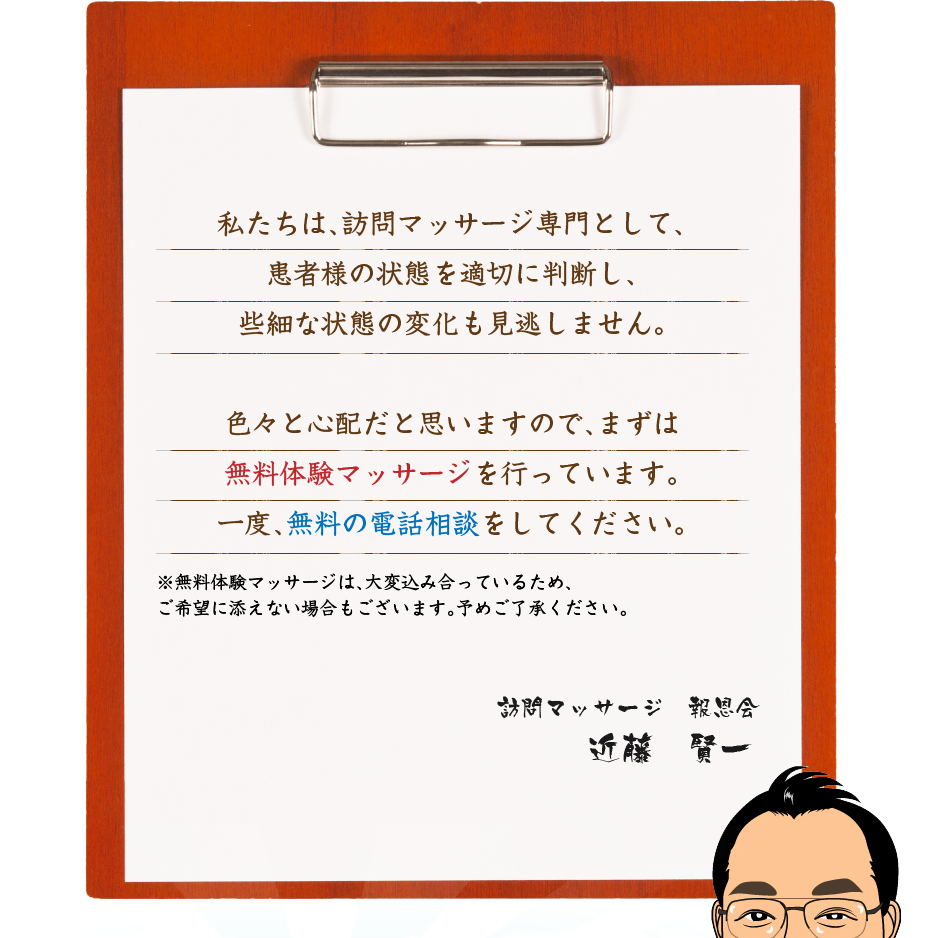 私たちは、訪問マッサージ専門として、
患者様の状態を適切に判断し、
些細な状態の変化も見逃しません。
色々と心配だと思いますので、まずは
無料体験マッサージを行っています。
一度、無料の電話相談をしてください。
※無料体験マッサージは、大変込み合っているため、
ご希望に添えない場合もございます。予めご了承ください。
訪問マッサージ　報恩会
近藤　賢一